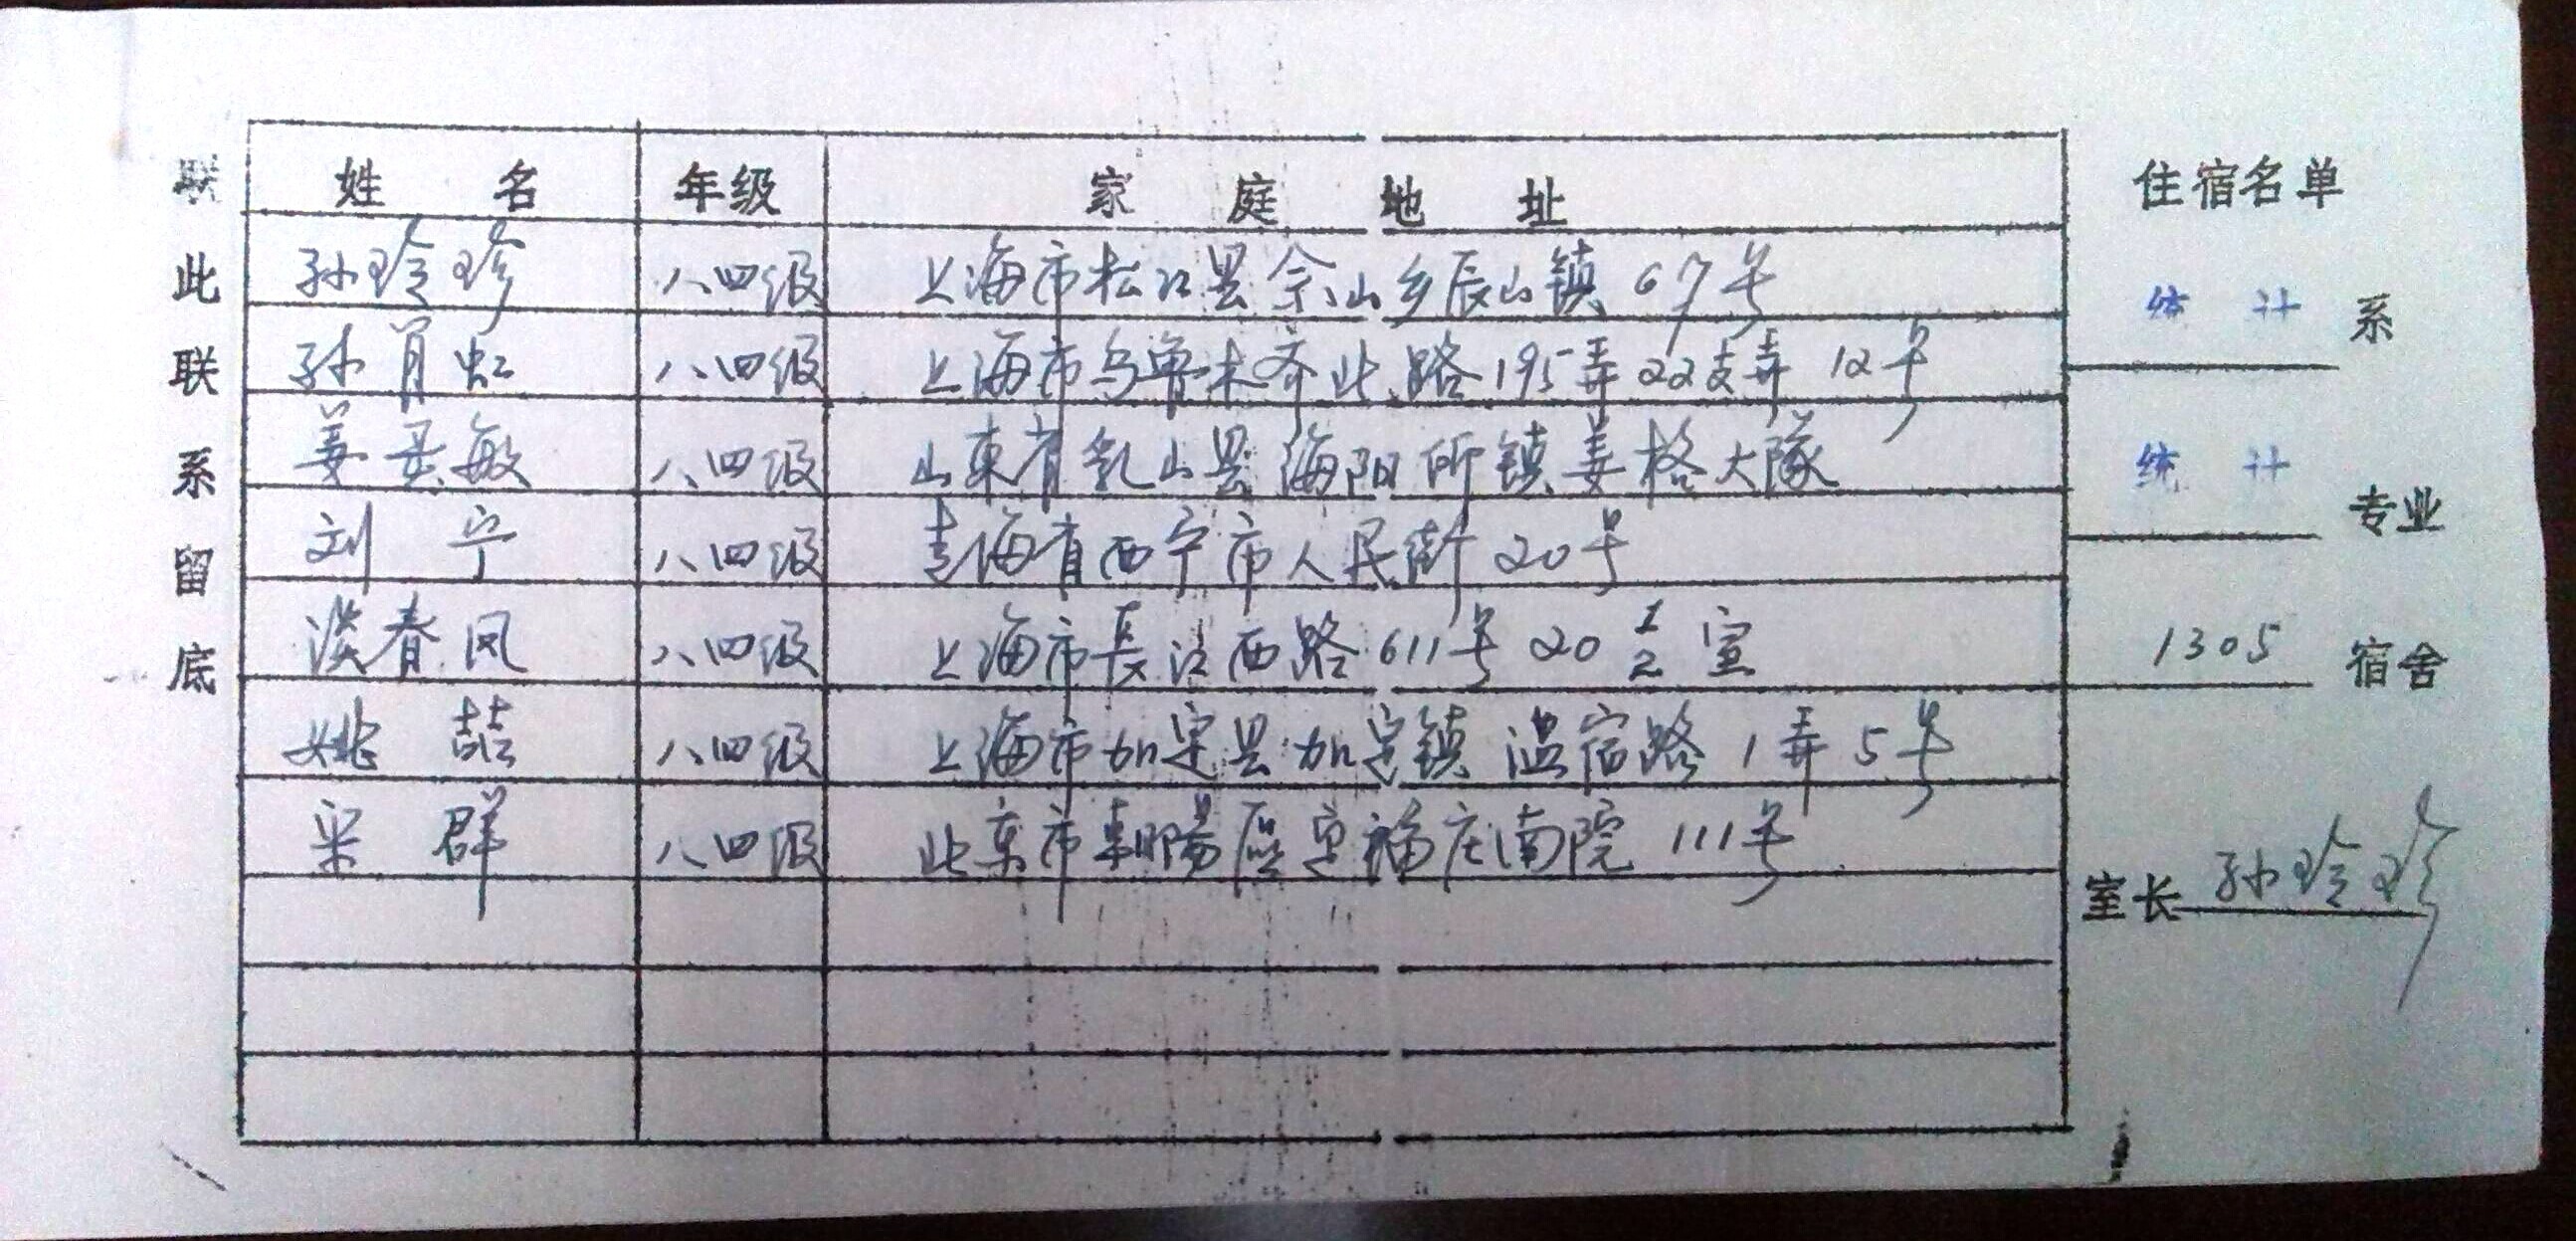 联此联系留底
姓 名 年级 家 庭 地 址
孙玲珍 八四级 上海市松江县佘山乡辰山镇67号
孙肖虹 八四级 上海市乌鲁木齐北路195弄22支弄12号
姜 敏 八四级 山東省乳山县海阳所镇姜格大隊
刘宁 八四级 青海省西宁市人民街20号
淡春凤 八四级 上海市長江西路611号20 1/2室
姚喆 八四级 上海市加定县加定镇温宿路1弄5号
群 八四级 北京市朝陽區定福庄南院111号
住宿名单
统计系
统计专业
1305宿舍
室长孙玲珍